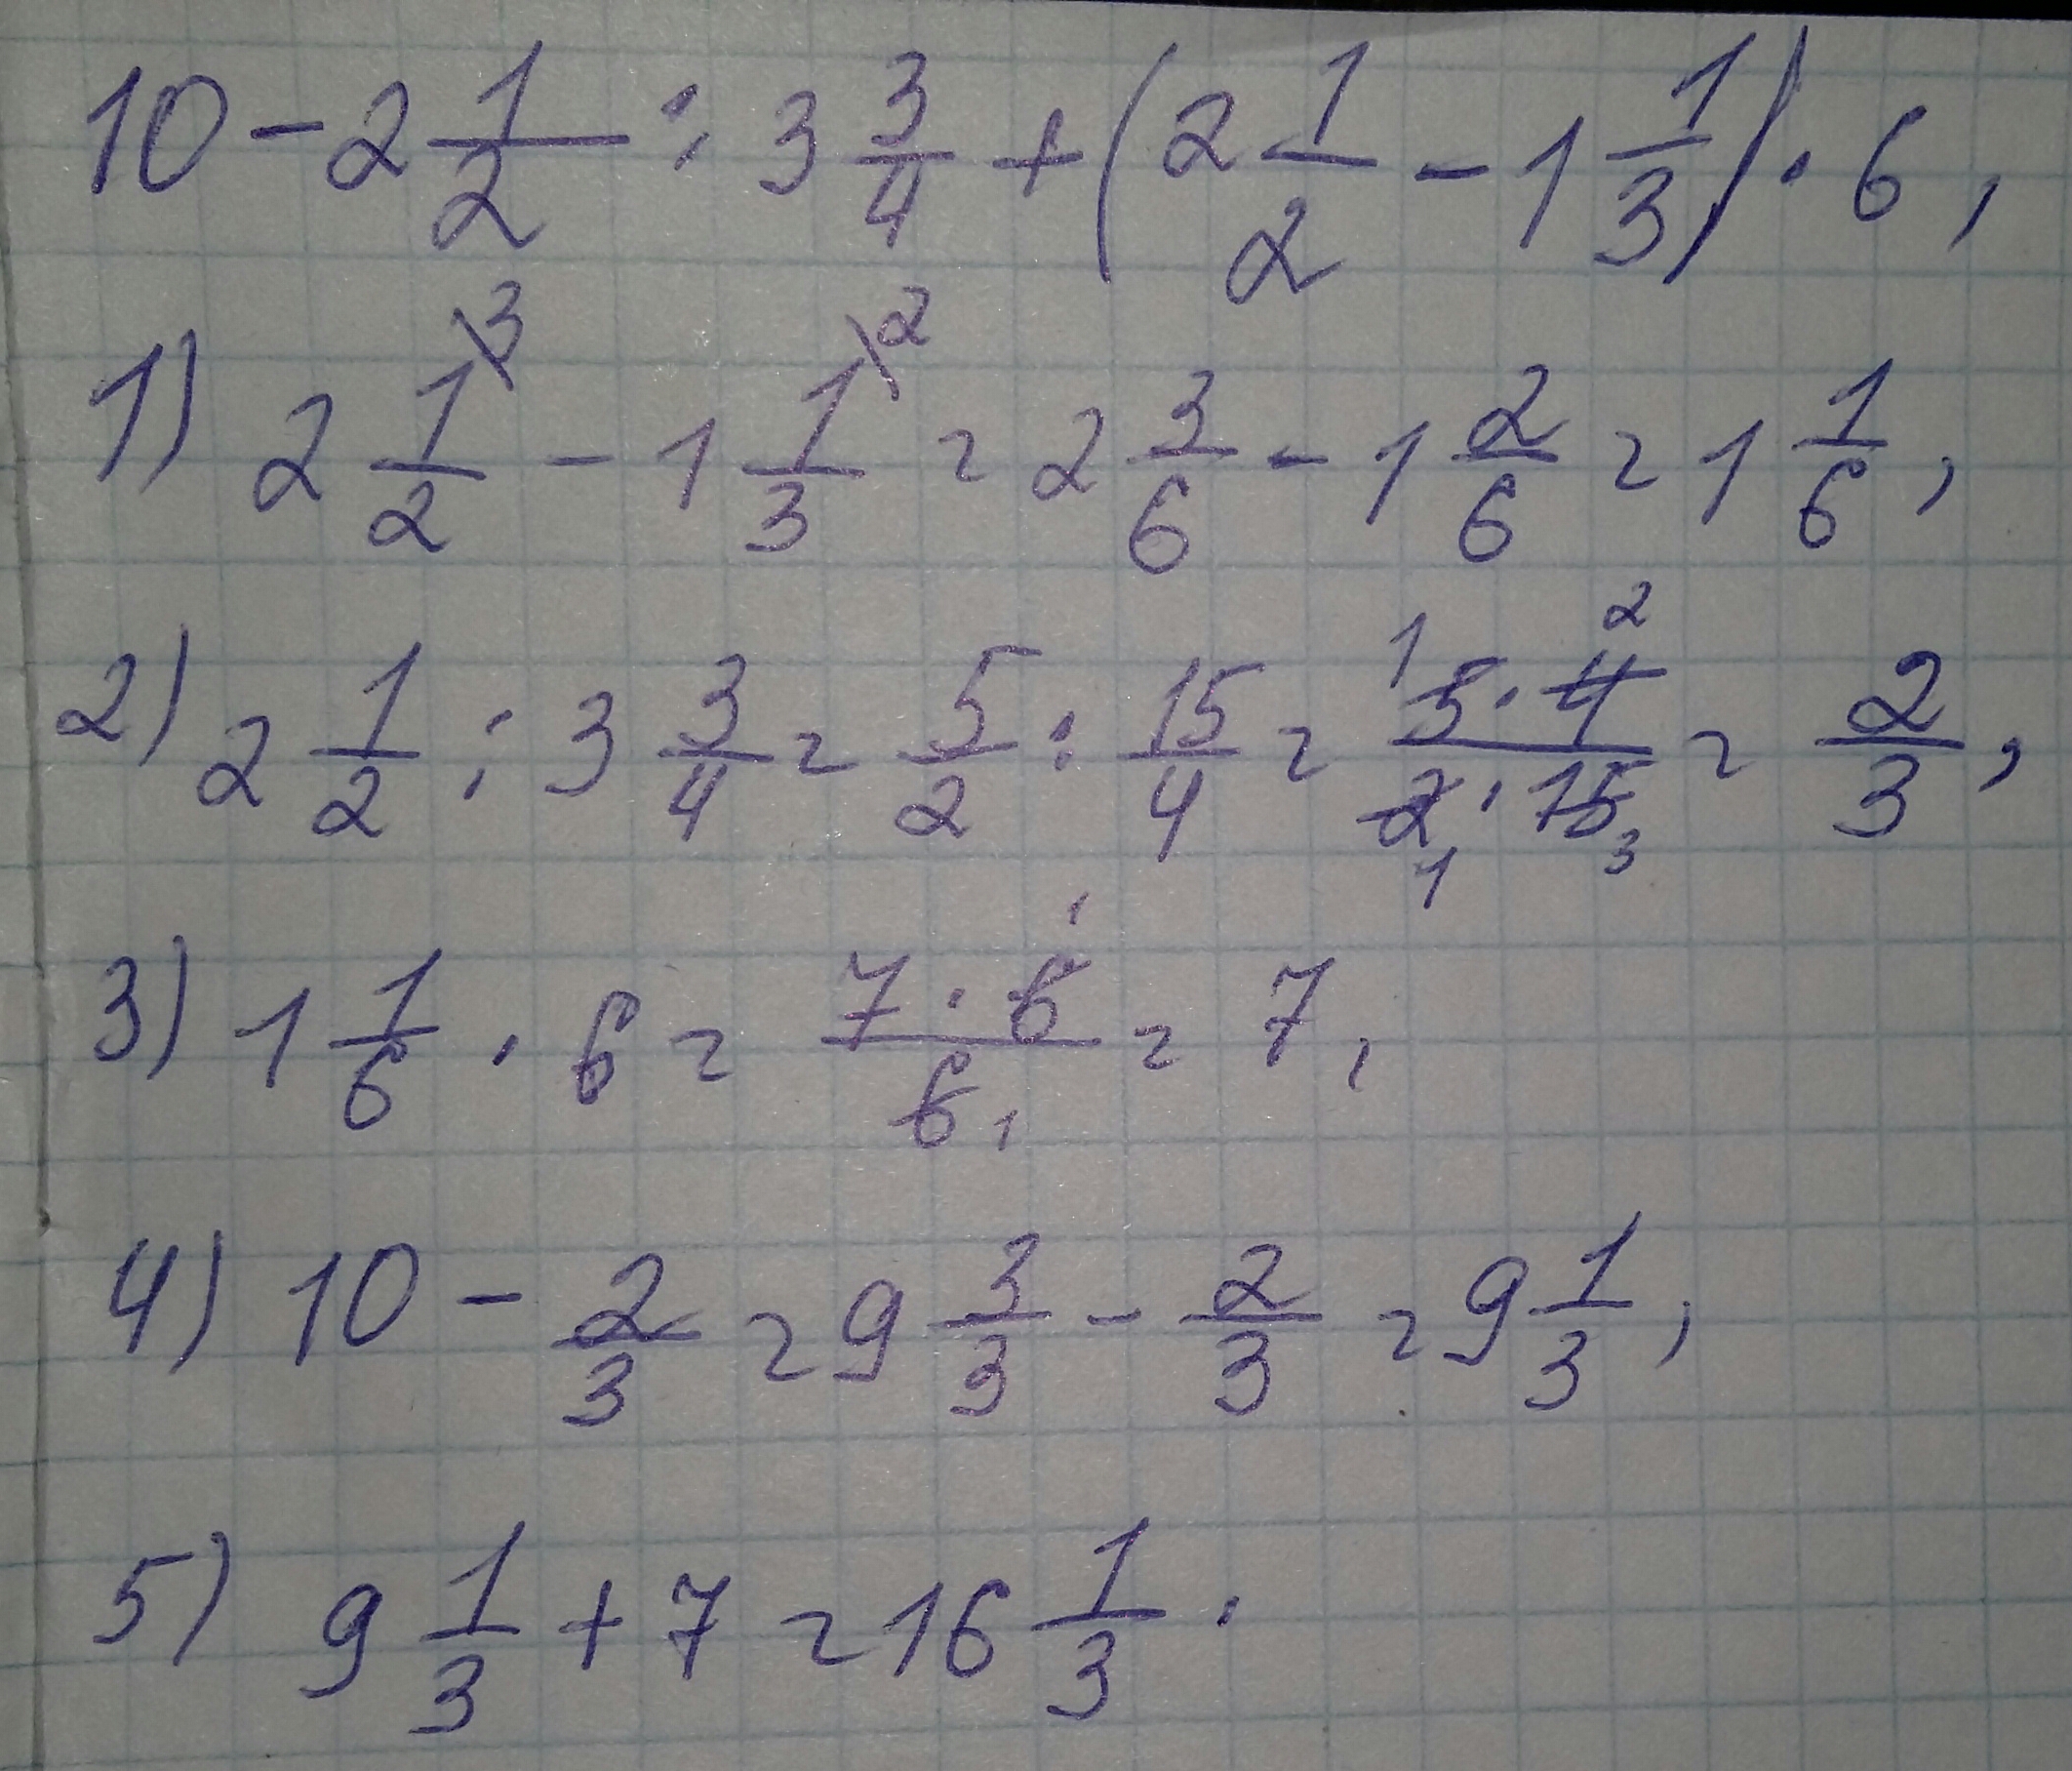 10 - 2 1/2 : 3 3/4 + (2 1/2 - 1 1/3) · 6,
1) 2 1\3/2 - 1 1\2/3 = 2 3/6 - 1 2/6 = 1 1/6,
2) 2 1/2 : 3 3/4 = 5/2 : 15/4 = 1 5 · 4 2 / 2 1 · 15 3 = 2/3,
3) 1 1/6 · 6 = 7 · 6 1 / 6 1 = 7,
4) 10 - 2/3 = 9 3/3 - 2/3 = 9 1/3,
5) 9 1/3 + 7 = 16 1/3.